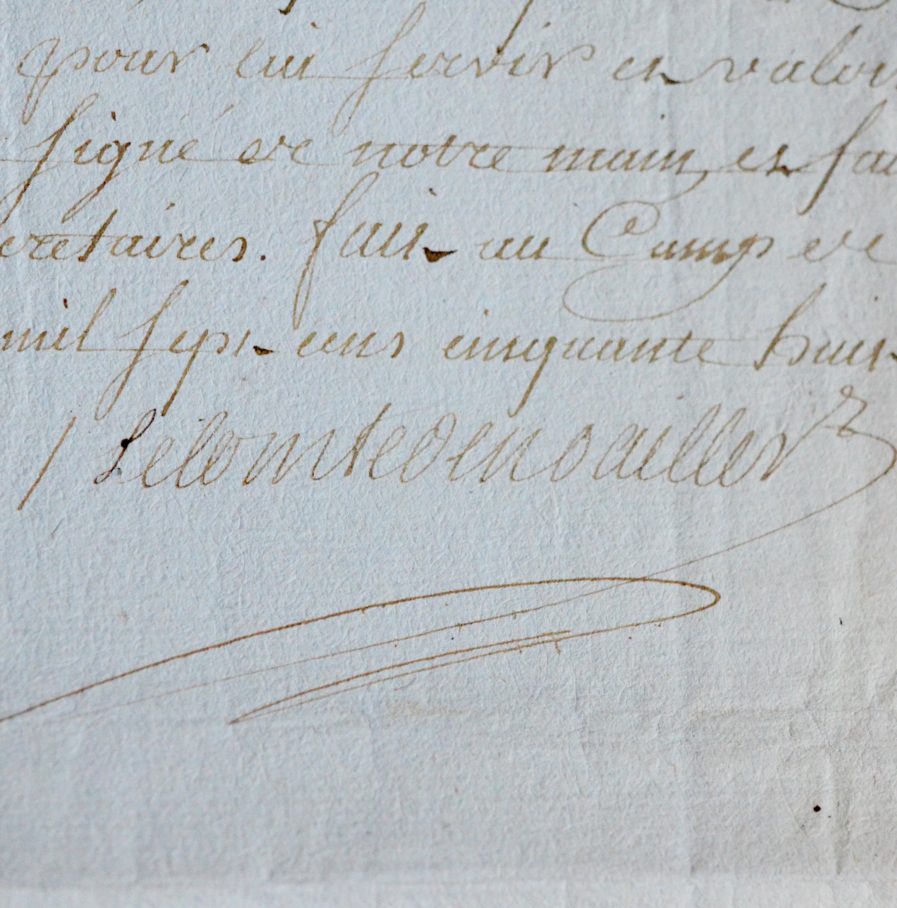 pour lui servir et valoir
signé de notre main, et fai
ecretaires. fait au Camp de
mil sept cens cinquante huit
Le Comte de noailles